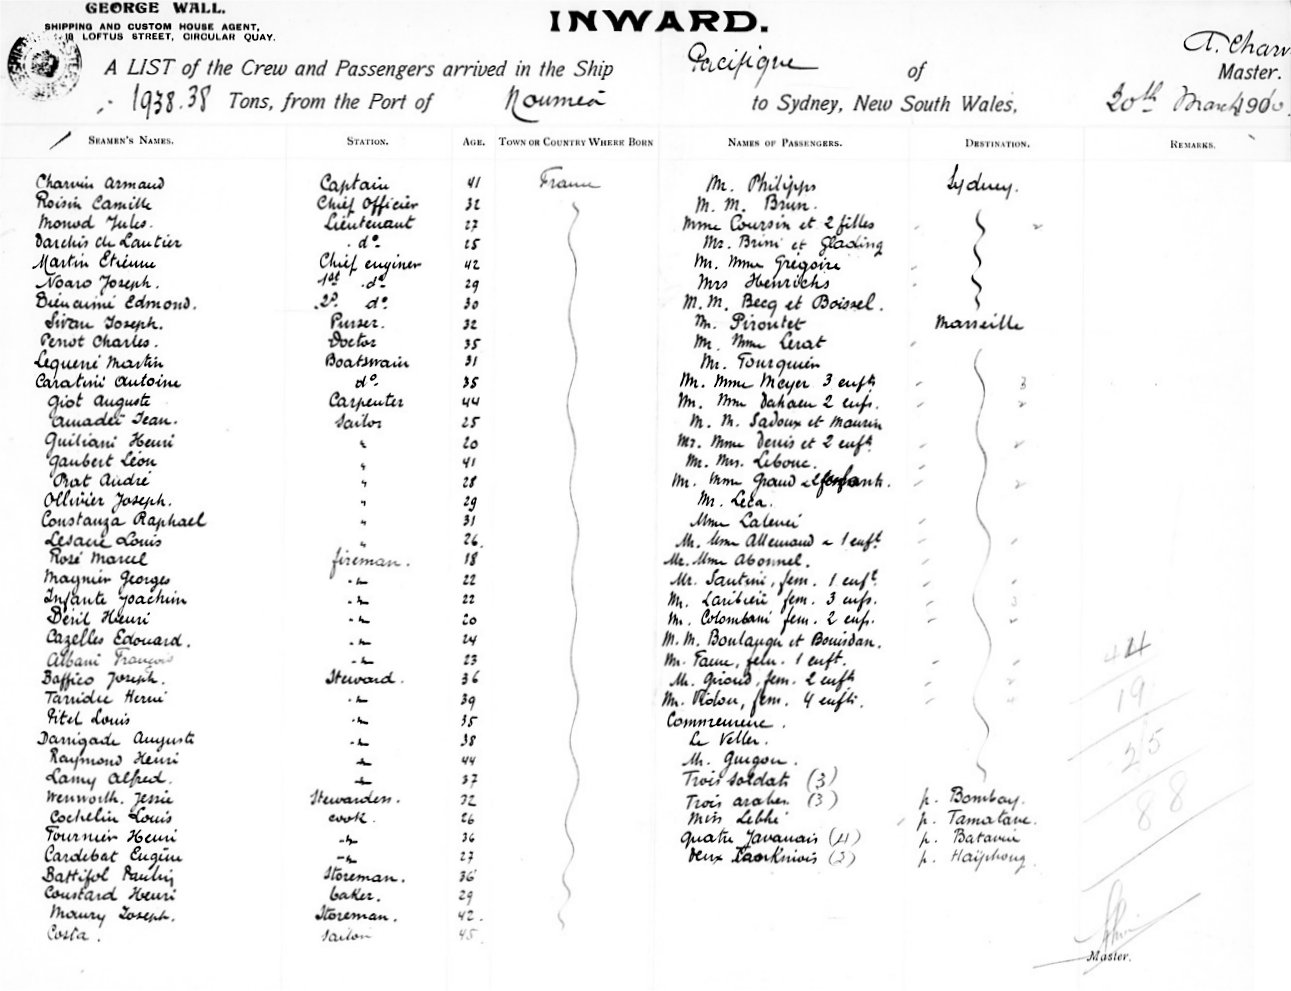 GEORGE WALL.
SHIPPING AND CUSTOM HOUSE AGENT,
18 LOFTUS STREET, CIRCULAR QUAY.
INWARD.
A. Charvin
A LIST of the Crew and Passengers arrived in the Ship Pacifique of Master.
1938.38 Tons, from the Port of Noumea to Sydney, New South Wales, 20th March 1900
SEAMEN'S NAMES. STATION. AGE. TOWN OR COUNTRY WHERE BORN NAMES OF PASSENGERS. DESTINATION. REMARKS.
Charvin Armand Captain 41 France Mr. Philipps Sydney.
Roisin Camille Chief Officier 32 M. M. Brun.
Monod Jules. Lieutenant 27 Mme Coursin et 2 filles
Darchis de Lautier do. 25 Mr. Brini et Glading
Martin Etienne Chief enginer 42 Mr. Mme Grégoire
Noaro Joseph. 1st do 29 Mrs Henrichs
Dieuaimé Edmond. 2d. do 30 M. M. Becq et Boissel.
Sivan Joseph. Purser. 32 Mr. Piroutet Marseille
Penot Charles. Doctor 35 Mr. Mme Lerat
Lequerré Martin Boatswain 31 Mr. Tourquien
Caratini Antoine do. 35 Mr. Mme Meyer 3 enfts 3
Giot Auguste Carpenter 44 Mr. Mme Dahaeu 2 enfs. 2
Amadeï Jean. Sailor 25 M. M. Sadoux et Maurin
Guiliani Henri " 20 Mr. Mme Denis et 2 enfts 2
Gaubert Léon " 41 Mr. Mrs. Lebouc.
Prat André " 28 Mr. Mme Graud 2 enfants. 2
Ollivier Joseph. " 29 Mr. Leca.
Constanza Raphael " 31 Mme
Lesacre Louis " 26. Mr. Mme Allemand 1 enft.
Rosé Marcel fireman. 18 Mr. Mme Abonnel.
Maynier Georges 22 Mr. Santini, fem. 1 enft.
Infante Joachim 22 Mr. fem. 3 enfs. 3
Déril Henri 20 Mr. Colombani fem. 2 enfs. 2
Cazelles Edouard. 24 M. M. Boulanger et Bouisdan.
Albani François 23 Mr. Faure, fem. 1 enft.
Baffico Joseph. Steward. 36 Mr. Giroud, fem. 2 enfts 2
Tarridec Hervé 39 Mr. Vidou, fem. 4 enfts. 4
Pitel Louis 35 Commremerc.
Darrigade Auguste 38 Le Veller.
Raymond Henri 44 Mr. Guigou.
Lamy Alfred. 37 Trois soldats (3)
Wenworth. Jessie Stewardess. 32 Trois arabes (3) p. Bombay.
Cochelin Louis cook. 26 Miss Lebhi p. Tamatave.
Fournier Henri 36 Quatre Javanais (4) p. Batavia
Cardebat Eugène 27 Deux Tonkinois (2) p. Haïphong
Battifol Paulin Storeman. 36
Coustard Henri baker. 29
Maury Joseph. Storeman. 42.
Costa. Sailor 45.
44
19
25
88
Master.